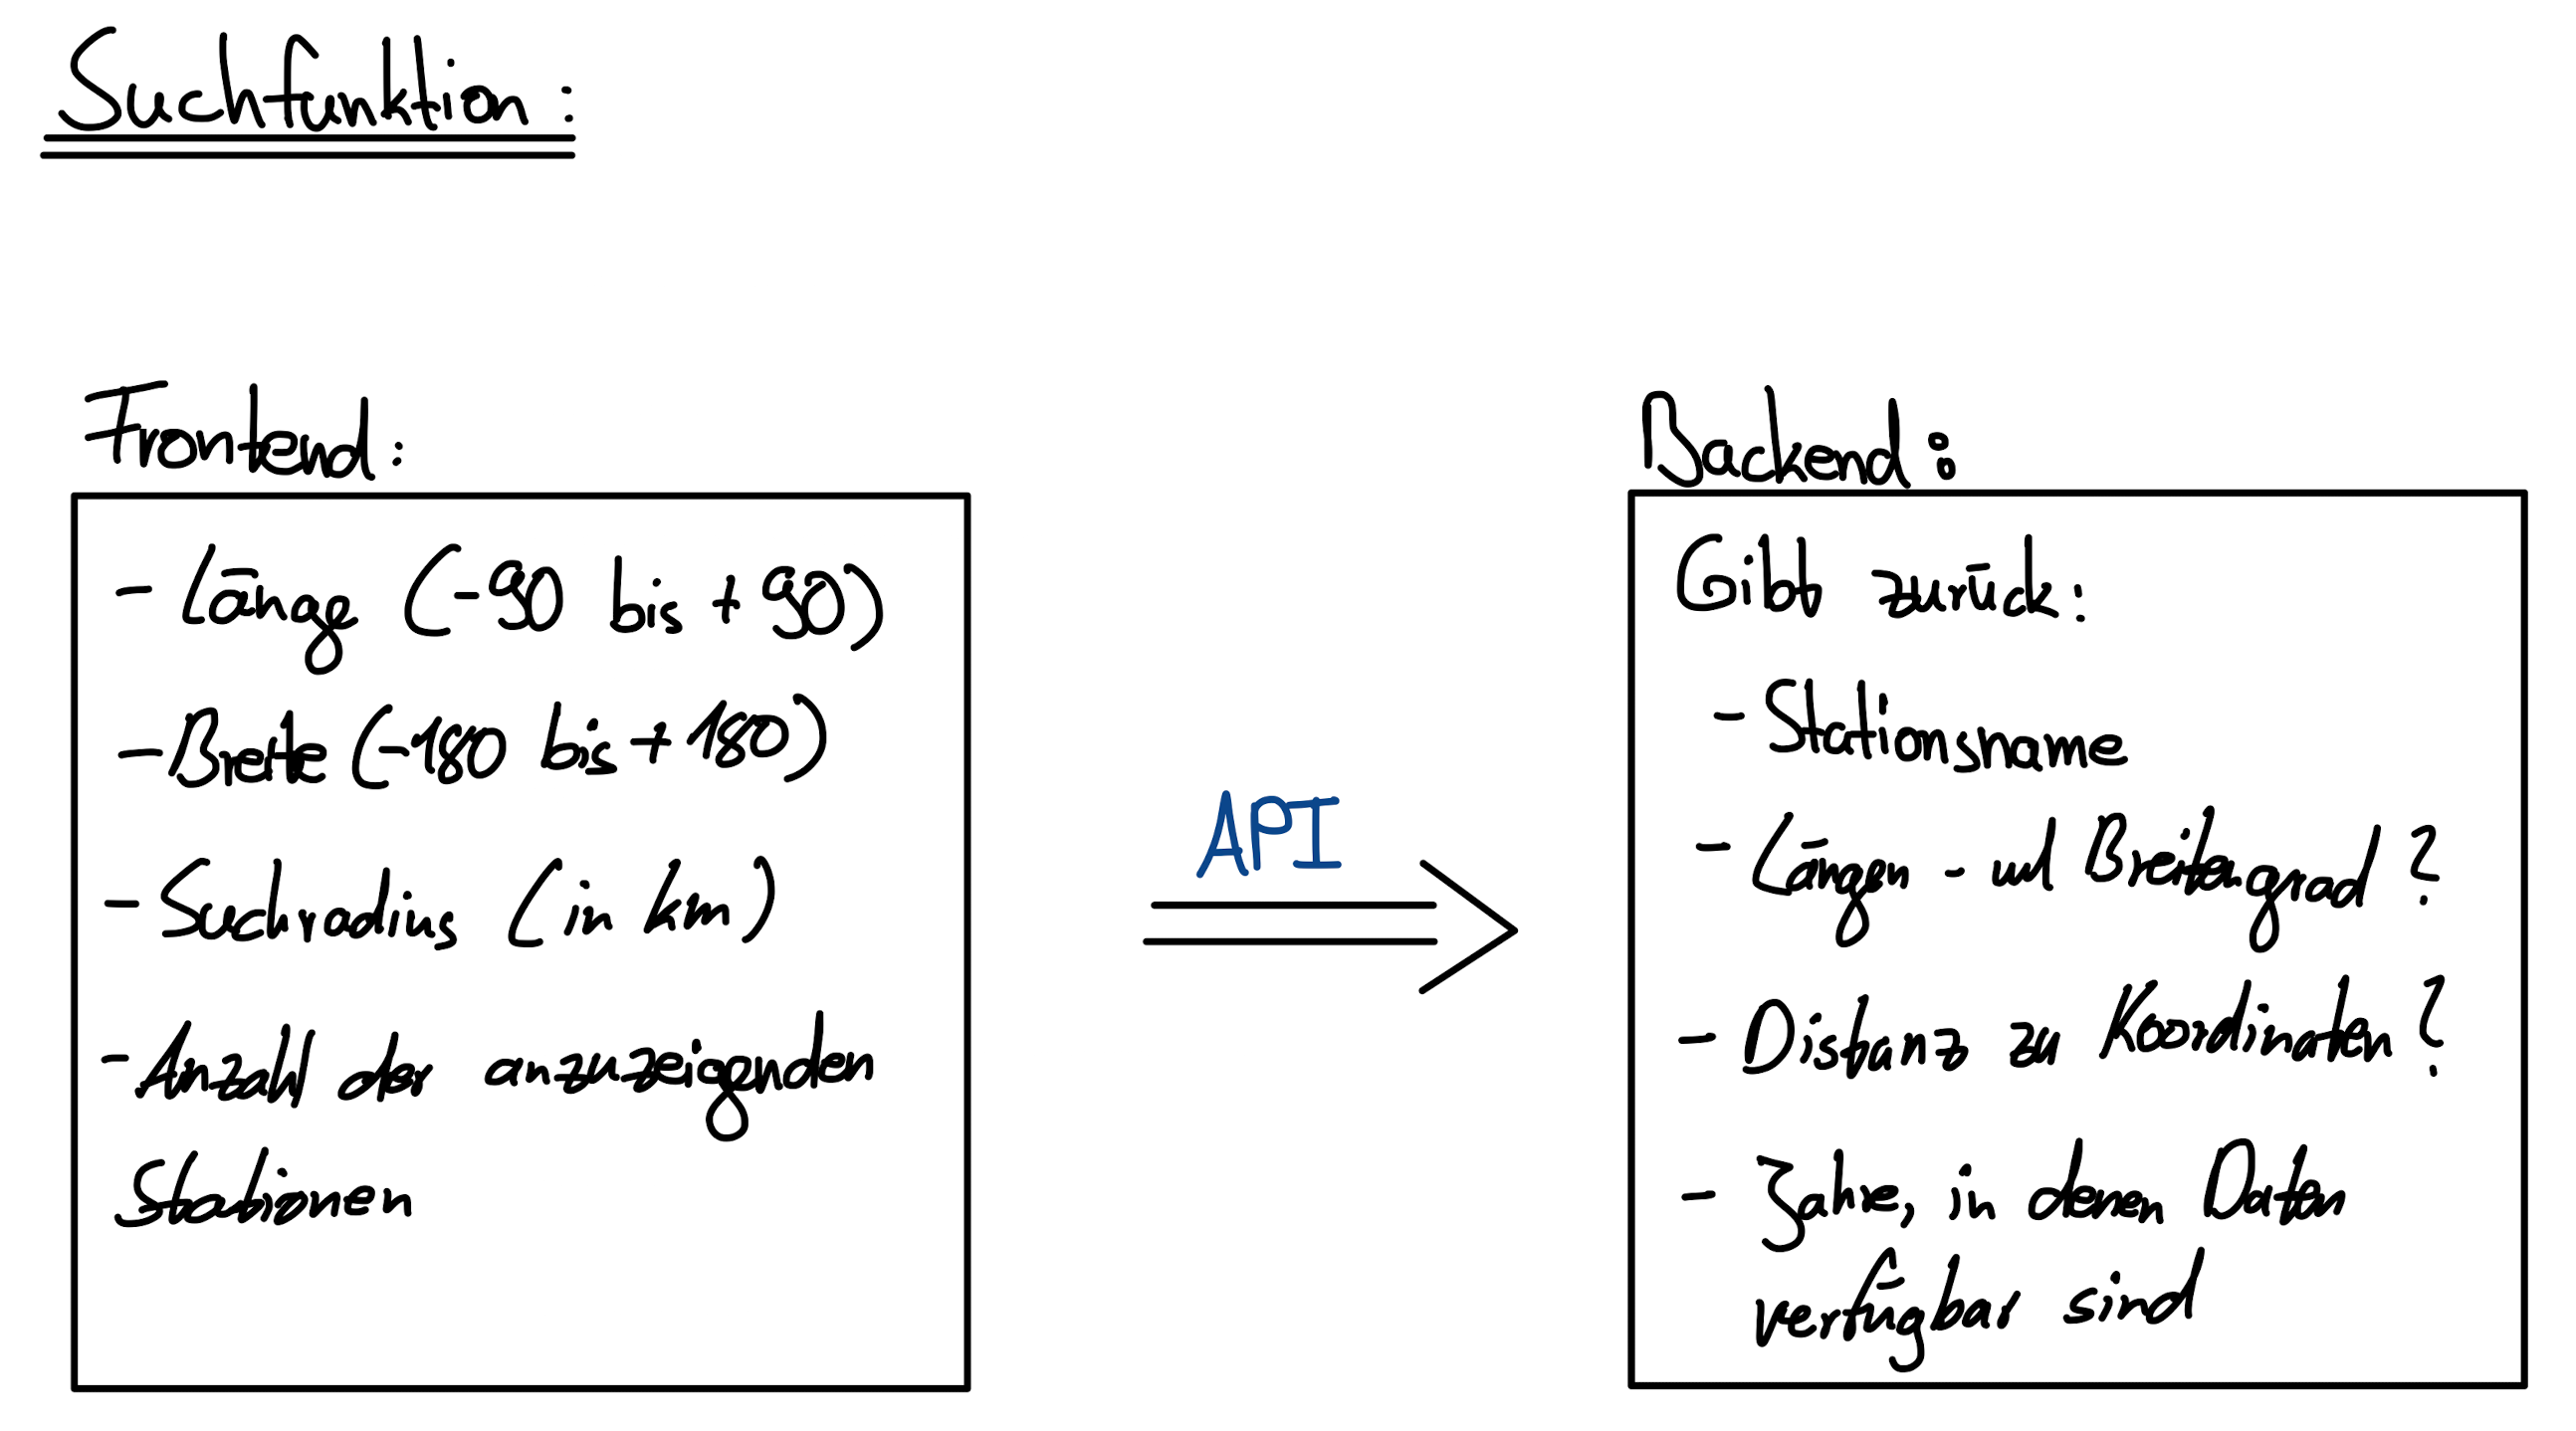 Suchfunktion:
Frontend:
- Länge (-90 bis +90)
- Breite (-180 bis +180)
- Suchradius (in km)
- Anzahl der anzuzeigenden
Stationen
API
Backend:
Gibt zurück:
- Stationsname
- Längen- und Breitengrad?
- Distanz zu Koordinaten?
- Jahre, in denen Daten
verfügbar sind